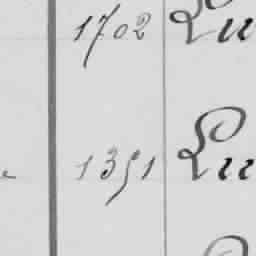 1702 Lu
1351 Lu